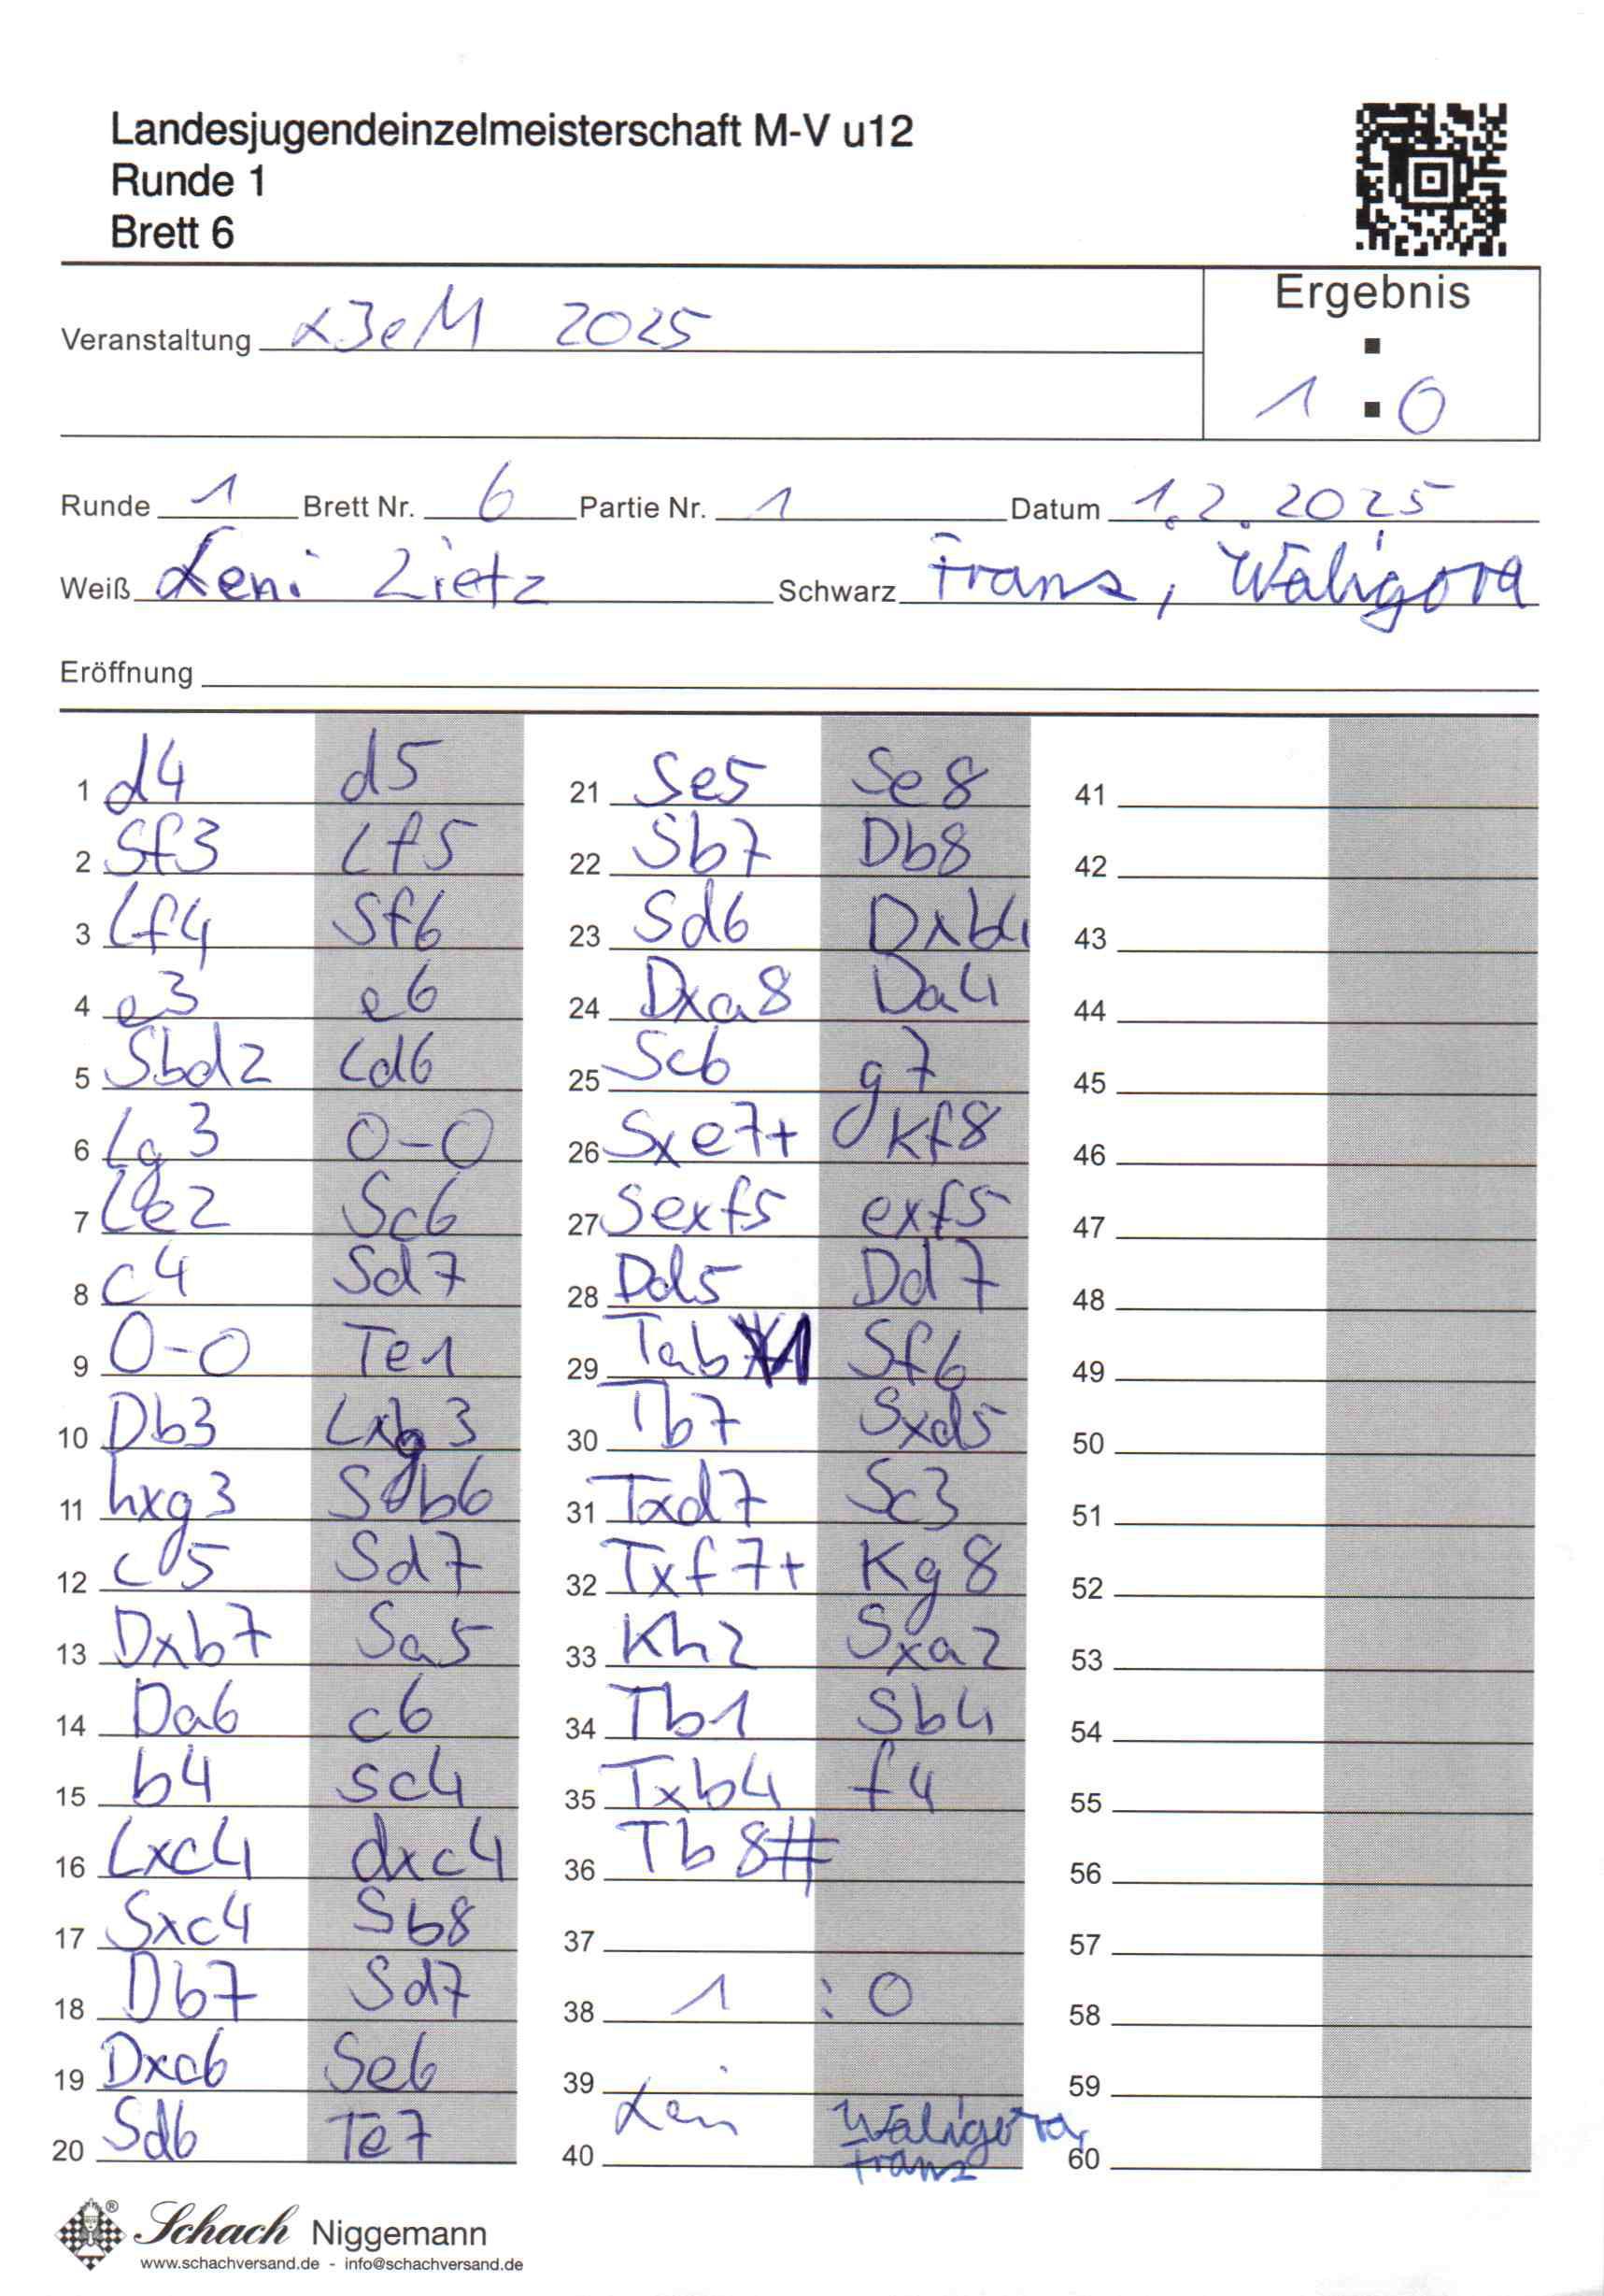 Landesjugendeinzelmeisterschaft M-V u12
Runde 1
Brett 6
Ergebnis
:
Veranstaltung LJeM 2025
1 : 0
Runde 1 Brett Nr. 6 Partie Nr. 1 Datum 1.2.2025
Weiß Leni Lietz Schwarz Franz, Waligora
Eröffnung
1 d4 d5
2 Sf3 Lf5
3 Lf4 Sf6
4 e3 e6
5 Sbd2 Ld6
6 Lg3 0-0
7 Le2 Sc6
8 c4 Sd7
9 0-0 Te1
10 Db3 Lxg3
11 hxg3 Sdb6
12 c5 Sd7
13 Dxb7 Sa5
14 Da6 c6
15 b4 Sc4
16 Lxc4 dxc4
17 Sxc4 Sb8
18 Db7 Sd7
19 Dxc6 Se6
20 Sd6 Te7
21 Se5 Se8
22 Sb7 Db8
23 Sd6 Dxb4
24 Dxa8 Da4
25 Sc6 g7
26 Sxe7+ Kf8
27 Sexf5 exf5
28 Dd5 Dd7
29 Tab1 Sf6
30 Tb7 Sxd5
31 Txd7 Sc3
32 Txf7+ Kg8
33 Kh2 Sxa2
34 Tb1 Sb4
35 Txb4 f4
36 Tb8#
37
38 1 : 0
39
40 Leni Waligora, Franz
41
42
43
44
45
46
47
48
49
50
51
52
53
54
55
56
57
58
59
60
Schach Niggemann
www.schachversand.de - info@schachversand.de